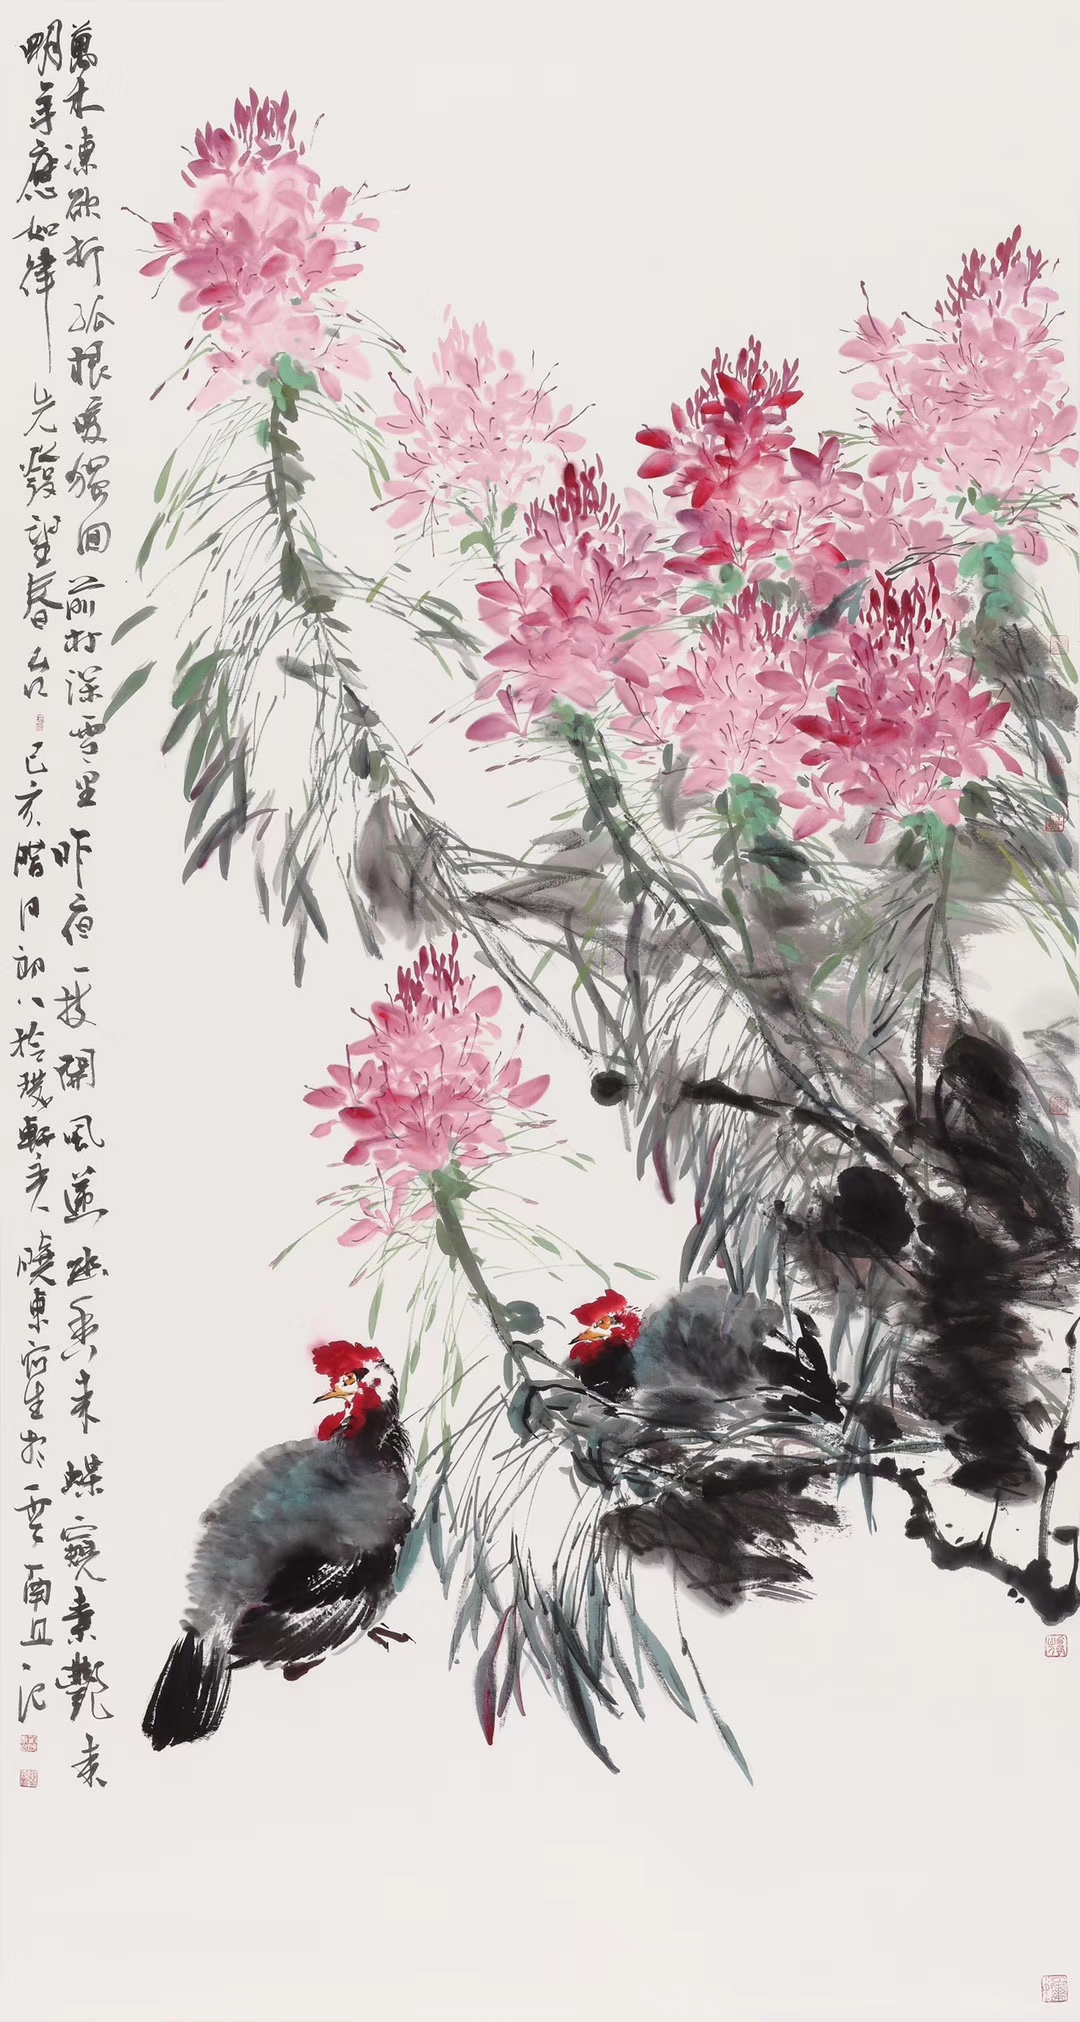 萬木凍欲折孤根暖獨回前村深雪里昨夜一枝開風遞幽香来蝶窺素艷来
明年應如律先發望春台己亥腊月初八於軒主人曉東寫生於雲南且记